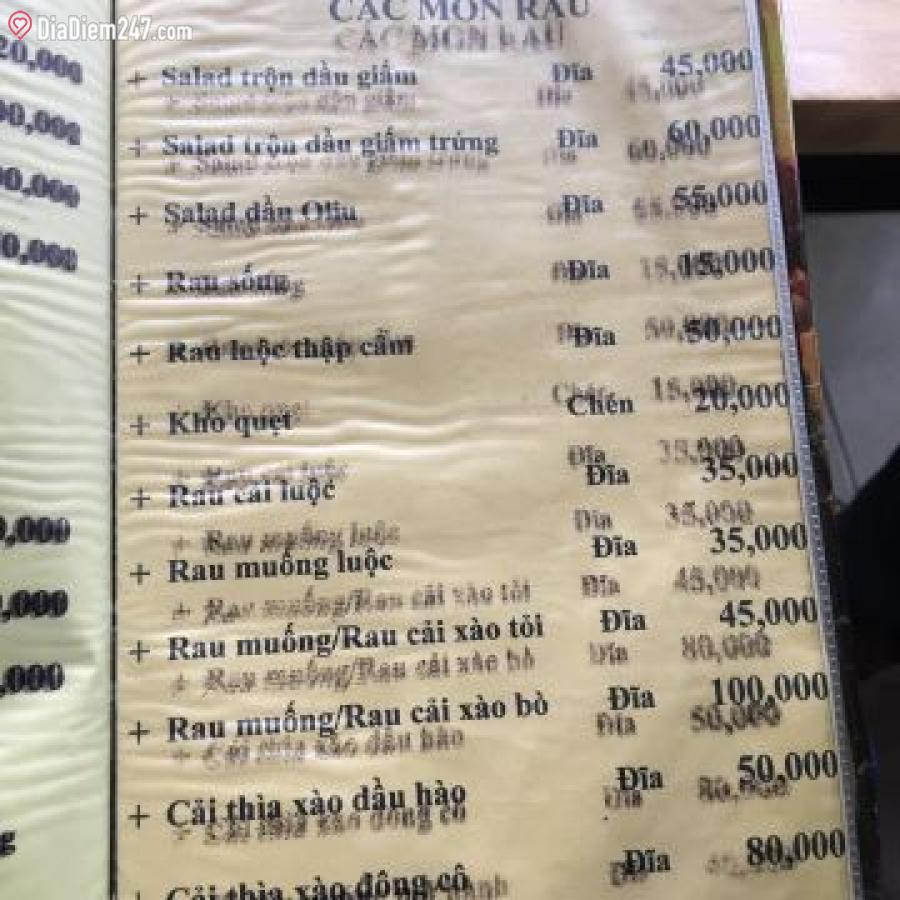 DiaDiem247.com
CÁC MÓN RAU
+ Salad trộn dầu giấm Đĩa 45,000
+ Salad trộn dầu giấm trứng Đĩa 60,000
+ Salad dầu Oliu Đĩa 55,000
+ Rau sống Đĩa 15,000
+ Rau luộc thập cẩm Đĩa 50,000
+ Kho quẹt Chén 20,000
+ Rau cải luộc Đĩa 35,000
+ Rau muống luộc Đĩa 35,000
+ Rau muống/Rau cải xào tỏi Đĩa 45,000
+ Rau muống/Rau cải xào bò Đĩa 100,000
+ Cải thìa xào dầu hào Đĩa 50,000
+ Cải thìa xào đông cô Đĩa 80,000